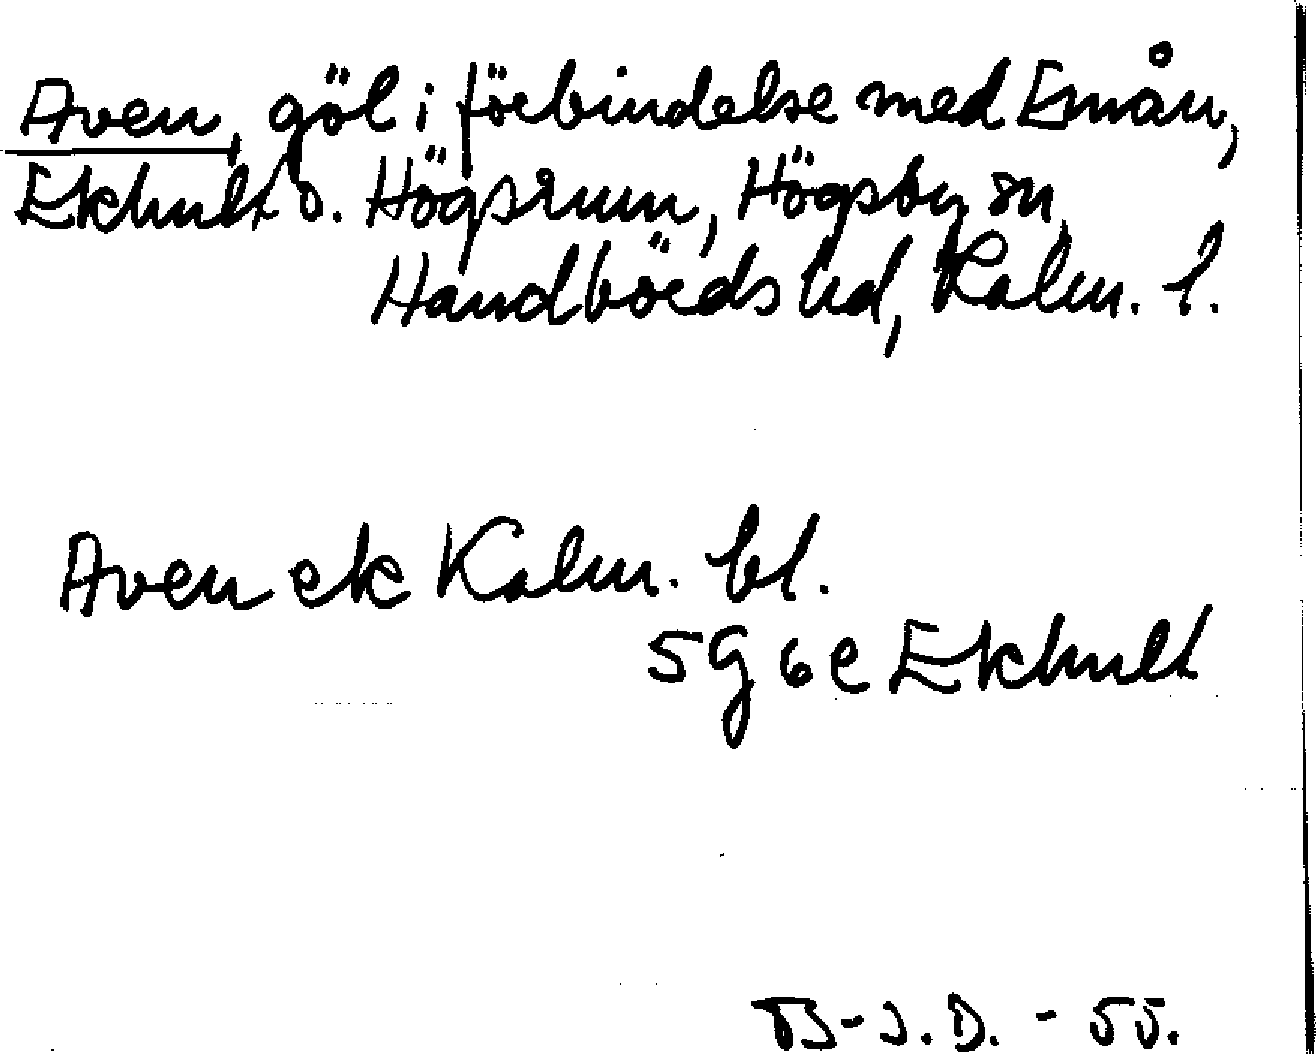 Aven, göl i förbindelse med Emån,
Ekhult o. Högsrum, Högsby sn,
Handbörds hd, Kalm. l.
Aven ek Kalm. bl.
5G6e Ekhult
B-J.D. - 55.